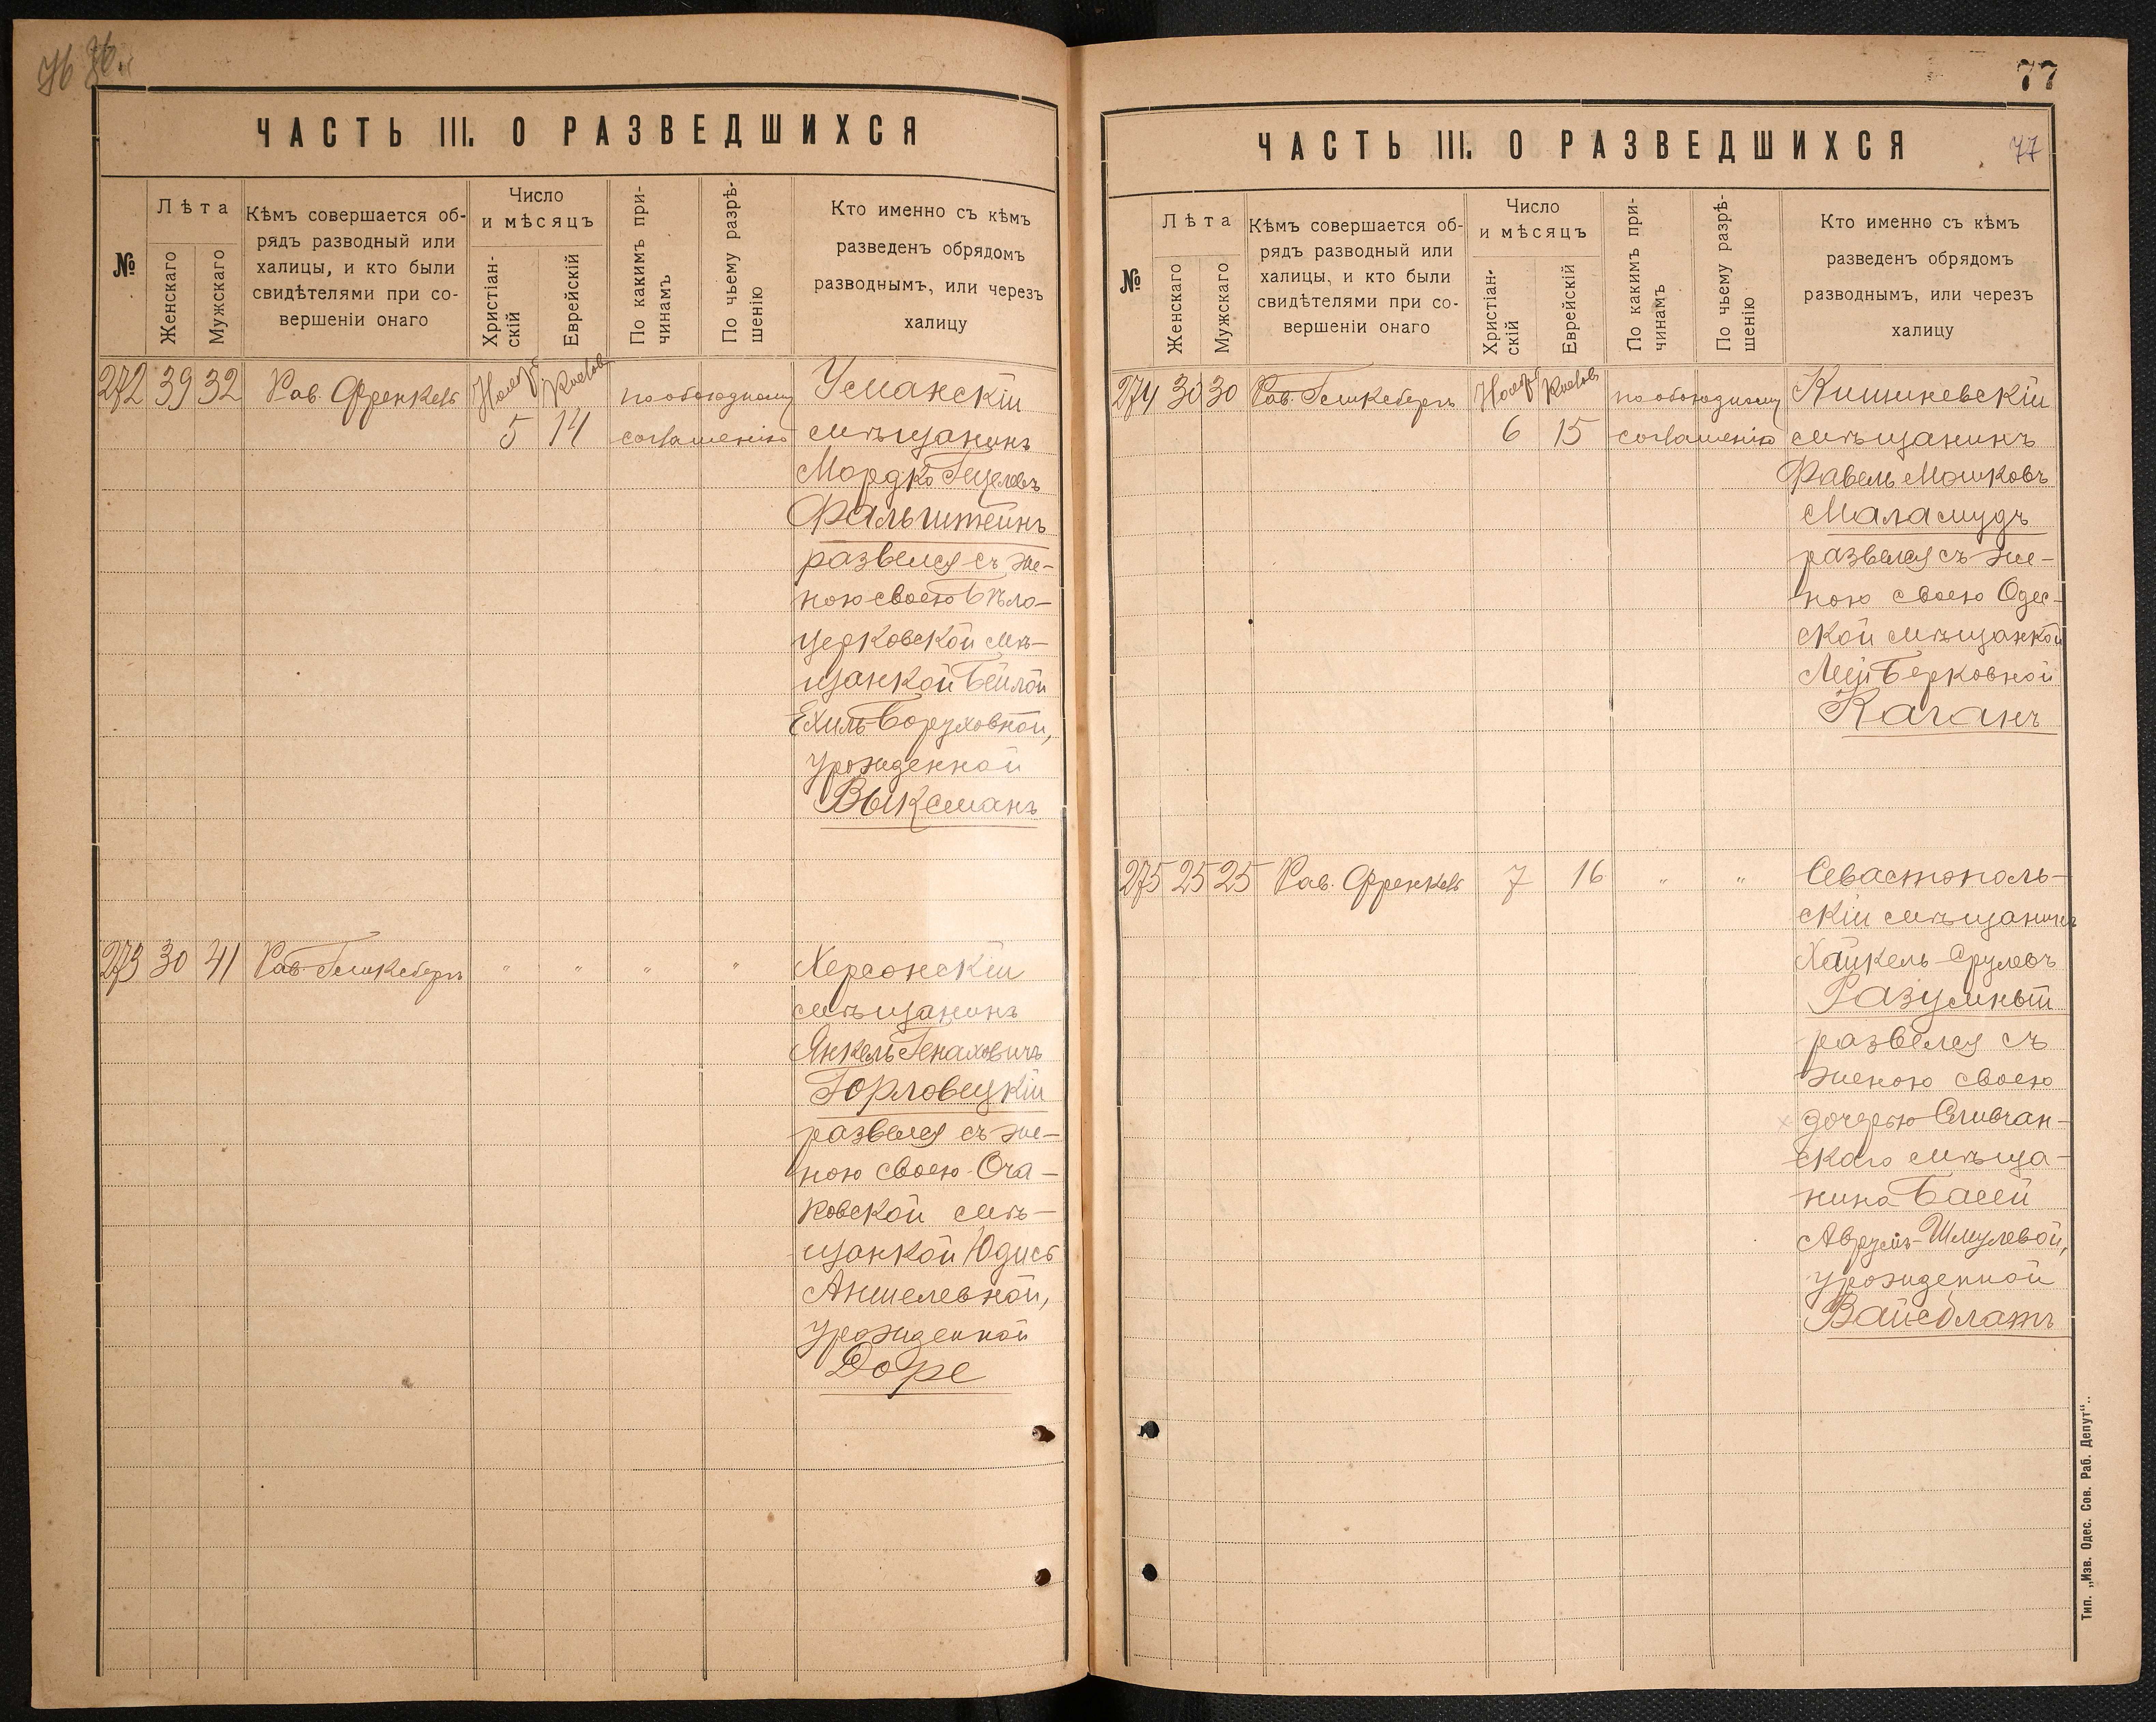 76
ЧАСТЬ III. О РАЗВЕДШИХСЯ
№
Лѣта
Женскаго
Мужскаго
Кѣмъ совершается об-
рядъ разводный или
халицы, и кто были
свидѣтелями при со-
вершеніи онаго
Число
и мѣсяцъ
Христіан-
скій
Еврейскій
По какимъ при-
чинамъ
По чьему разрѣ-
шенію
Кто именно съ кѣмъ
разведенъ обрядомъ
разводнымъ, или черезъ
халицу
272 39 32 Рав. Френкель Нояб. Кислев по обоюдному Уманскій
5 14 соглашенію мѣщанинъ
Мордко Гецелевъ
Фальштейнъ
развелся съ же-
ною своею Бѣло-
церковской мѣ-
щанкой Бейлой
Ехиль-Боруховной,
урожденной
Выксманъ
273 30 41 Рав. Геликбергъ " " " " Херсонскій
мѣщанинъ
Янкель Генаховичъ
Горловецкій
развелся съ же-
ною своею Оча-
ковской мѣ-
щанкой Юдись
Аншелевной,
урожденной
Доре
77
ЧАСТЬ III. О РАЗВЕДШИХСЯ
77
№
Лѣта
Женскаго
Мужскаго
Кѣмъ совершается об-
рядъ разводный или
халицы, и кто были
свидѣтелями при со-
вершеніи онаго
Число
и мѣсяцъ
Христіан-
скій
Еврейскій
По какимъ при-
чинамъ
По чьему разрѣ-
шенію
Кто именно съ кѣмъ
разведенъ обрядомъ
разводнымъ, или черезъ
халицу
274 30 30 Рав. Геликбергъ Нояб. Кислев по обоюдному Кишиневскій
6 15 соглашенію мѣщанинъ
Фавель Мошковъ
Маламудъ
развелся съ же-
ною своею Одес-
ской мѣщанкой
Леей Берковной
Каганъ
275 25 25 Рав. Френкель 7 16 " " Севастополь-
скій мѣщанинъ
Хайкель Срулевъ
Разумный
развелся съ
женою своею
дочерью
скаго мѣща-
нина Басей
Аврумъ-Шмулевой,
урожденной
Вайсблатъ
Тип. „Изв. Одес. Сов. Раб. Депут“.